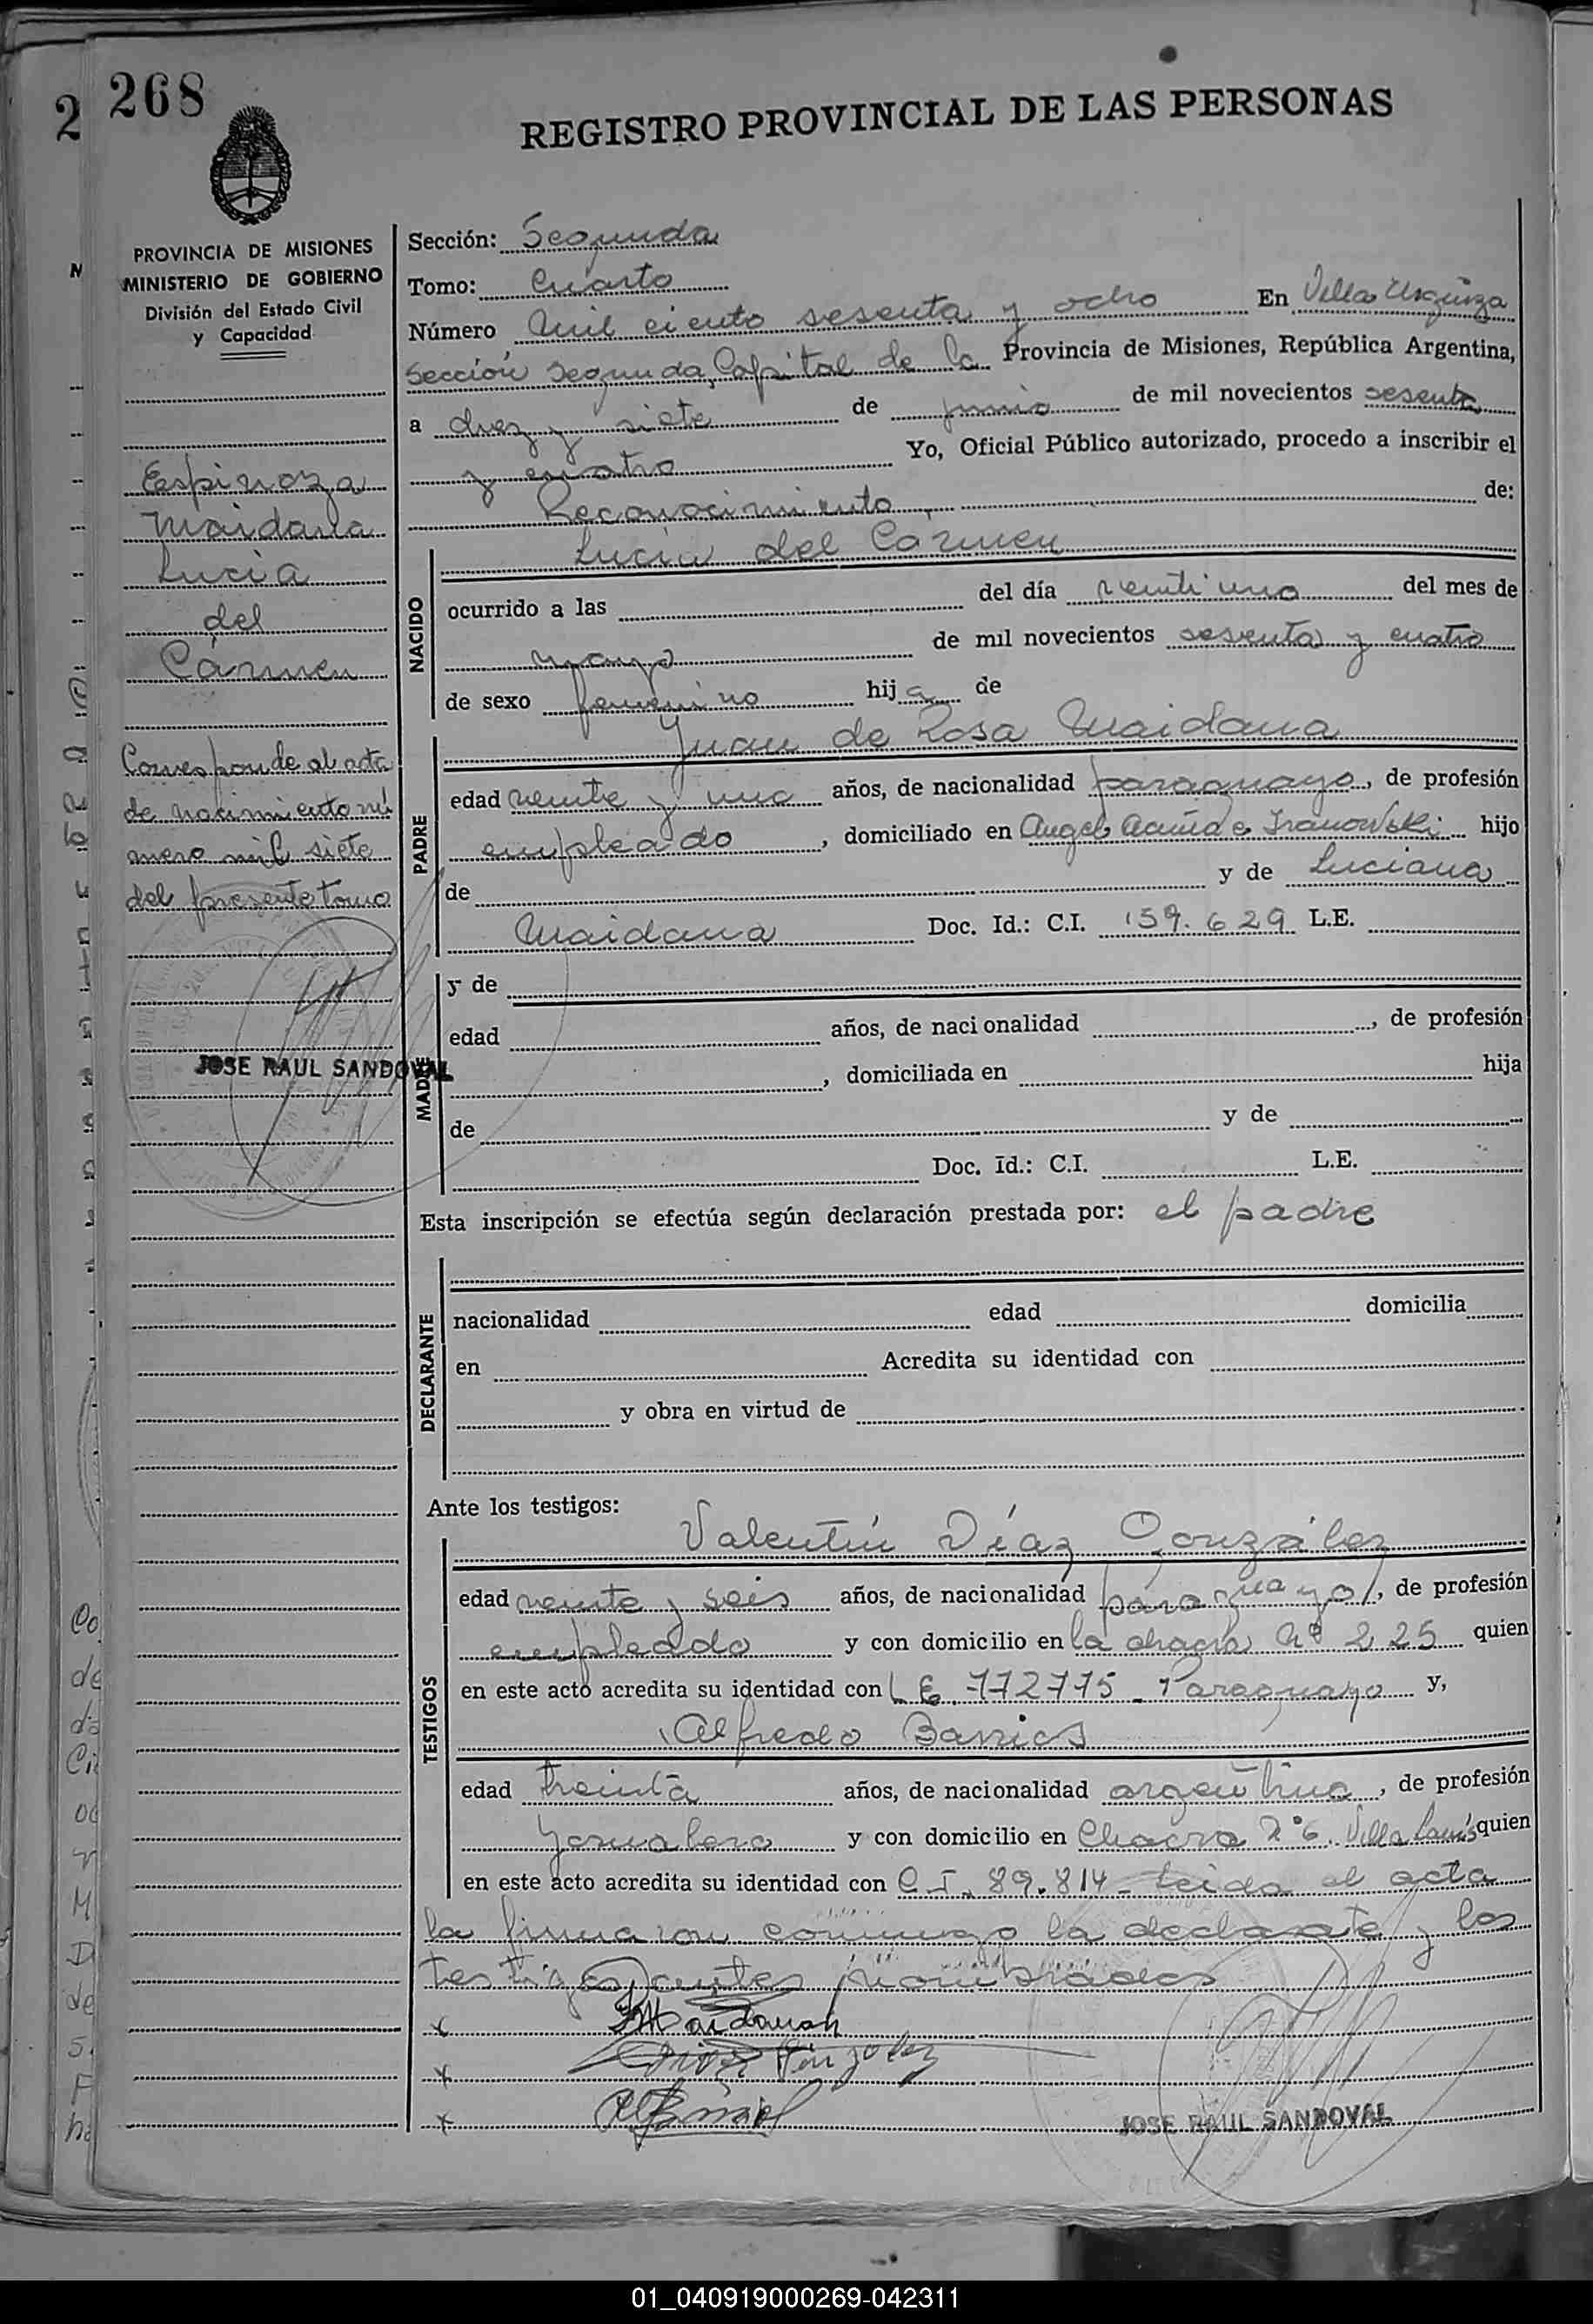 268
REGISTRO PROVINCIAL DE LAS PERSONAS
PROVINCIA DE MISIONES
MINISTERIO DE GOBIERNO
División del Estado Civil
y Capacidad
Espinoza
Maidana
Lucia
del
Cármen
Corresponde al acta
de nacimiento nú
mero mil siete
del presente tomo
JOSE RAUL SANDOVAL
Sección: Segunda
Tomo: Cuarto
Número Mil ciento sesenta y ocho En Villa Urquiza
Sección Segunda, Capital de la Provincia de Misiones, República Argentina,
a diez y siete de junio de mil novecientos sesenta
y cuatro Yo, Oficial Público autorizado, procedo a inscribir el
Reconocimiento de:
NACIDO
Lucia del Carmen
ocurrido a las del día veintiuno del mes de
mayo de mil novecientos sesenta y cuatro
de sexo femenino hija de
PADRE
Juan de Rosa Maidana
edad veinte y uno años, de nacionalidad paraguayo, de profesión
empleado, domiciliado en Angel Acuña e hijo
de y de Luciana
Maidana Doc. Id.: C.I. 159.629 L.E.
MADRE
y de
edad años, de nacionalidad , de profesión
, domiciliada en hija
de y de
Doc. Id.: C.I. L.E.
Esta inscripción se efectúa según declaración prestada por: el padre
DECLARANTE
nacionalidad edad domicilia
en Acredita su identidad con
y obra en virtud de
Ante los testigos:
TESTIGOS
Valentín Díaz González
edad veinte y seis años, de nacionalidad paraguayo, de profesión
empleado y con domicilio en la chacra Nº 225 quien
en este acto acredita su identidad con L E. 112775 - Paraguayo y,
Alfredo Barrios
edad treinta años, de nacionalidad argentino, de profesión
Jornalero y con domicilio en Chacra Nº6. Villa quien
en este acto acredita su identidad con C.I. 89.814 - Leida el acta
la firmaron conmigo la declarate y los
testigos antes nombrados
x Maidanah
x González
x
JOSE RAUL SANDOVAL
01_040919000269-042311